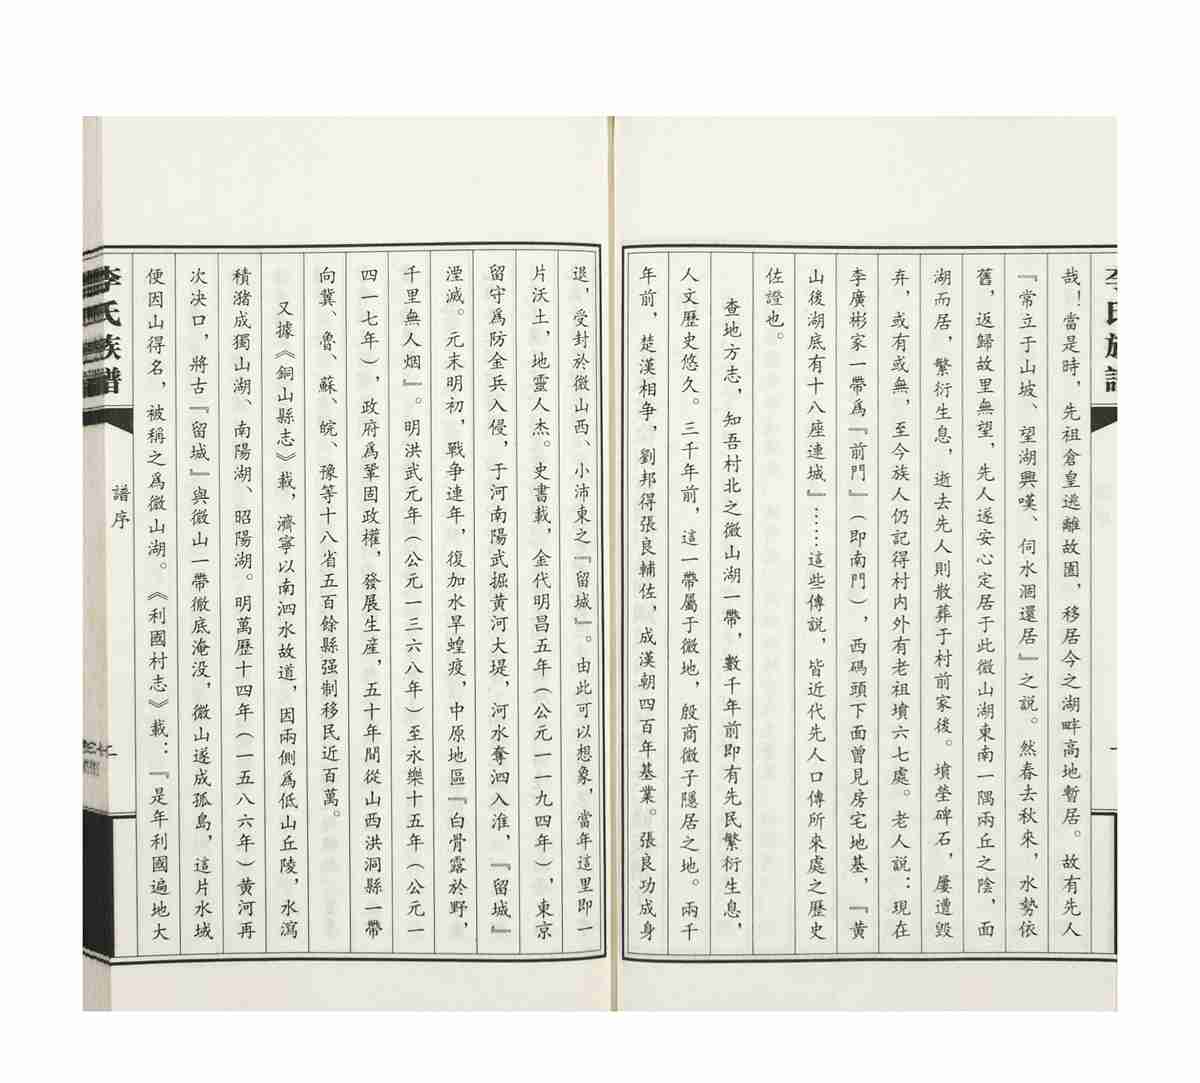 李氏族譜
哉！當是時，先祖倉皇逃離故園，移居今之湖畔高地暫居。故有先人
『常立于山坡、望湖興嘆、伺水涸還居』之説。然春去秋來，水勢依
舊，返歸故里無望，先人遂安心定居于此微山湖東南一隅兩丘之陰，面
湖而居，繁衍生息，逝去先人則散葬于村前家後。墳塋碑石，屢遭毀
弃，或有或無，至今族人仍記得村内外有老祖墳六七處。老人説：現在
李廣彬家一帶爲『前門』（即南門），西碼頭下面曾見房宅地基，『黄
山後湖底有十八座連城』……這些傳説，皆近代先人口傳所來處之歷史
佐證也。
查地方志，知吾村北之微山湖一帶，數千年前即有先民繁衍生息，
人文歷史悠久。三千年前，這一帶屬于微地，殷商微子隱居之地。兩千
年前，楚漢相争，劉邦得張良輔佐，成漢朝四百年基業。張良功成身
退，受封於微山西、小沛東之『留城』。由此可以想象，當年這里即一
片沃土，地靈人杰。史書載，金代明昌五年（公元一一九四年），東京
留守爲防金兵入侵，于河南陽武掘黄河大堤，河水奪泗入淮，『留城』
湮滅。元末明初，戰争連年，復加水旱蝗疫，中原地區『白骨露於野，
千里無人烟』。明洪武元年（公元一三六八年）至永樂十五年（公元一
四一七年），政府爲鞏固政權，發展生産，五十年間從山西洪洞縣一帶
向冀、魯、蘇、皖、豫等十八省五百餘縣强制移民近百萬。
又據《銅山縣志》載，濟寧以南泗水故道，因兩側爲低山丘陵，水瀉
積潴成獨山湖、南陽湖、昭陽湖。明萬歷十四年（一五八六年）黄河再
次决口，將古『留城』與微山一帶徹底淹没，微山遂成孤島，這片水域
便因山得名，被稱之爲微山湖。《利國村志》載：『是年利國遍地大
李氏族譜
譜序